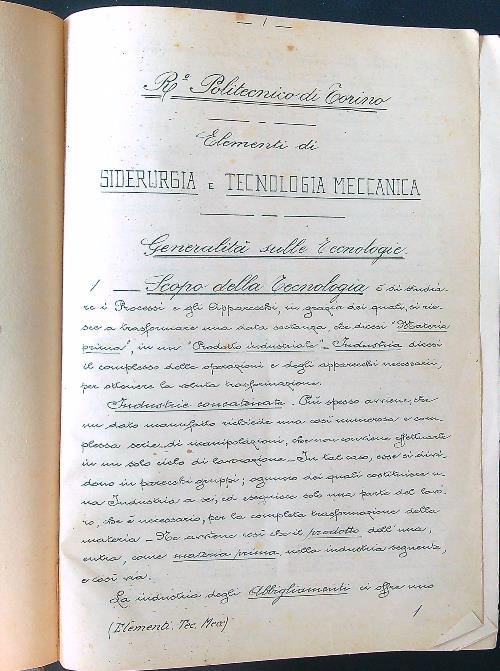 — 1 —
R.º Politecnico di Torino
Elementi di
SIDERURGIA E TECNOLOGIA MECCANICA
Generalità sulle Tecnologie.
1 — Scopo della Tecnologia è di studia=
re i Processi e gli Apparecchi, in grazia dei quali, si rie=
sce a trasformare una data sostanza, che dicesi "Materia
prima", in un "Prodotto industriale" - Industria dicesi
il complesso delle operazioni e degli apparecchi necessarii,
per ottenere la voluta trasformazione.
Industrie concatenate. Più spesso avviene, che
un dato manufatto richiede una così numerosa e com=
plessa serie di manipolazioni, che non conviene effettuarle
in un solo ciclo di lavorazione - In tal caso, esse si divi=
dono in parecchi gruppi; ognuno dei quali costituisce u=
na Industria a sé, ed eseguisce solo una parte del lavo=
ro, che è necessario, per la completa trasformazione della
materia - Ne avviene così che il prodotto dell'una,
entra, come materia prima, nella industria seguente,
e così via.
La industria degli Abbigliamenti ci offre uno
(Elementi. Tec. Mecc) 1